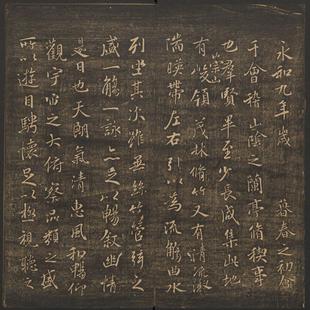 永和九年歲 暮春之初會
于會稽山陰之蘭亭脩稧事
也羣賢畢至少長咸集此地
有崇山峻領茂林脩竹又有清流激
湍暎帶左右引以為流觴曲水
列坐其次雖無絲竹管弦之
盛一觴一詠亦足以暢敘幽情
是日也天朗氣清惠風和暢仰
觀宇宙之大俯察品類之盛
所以遊目騁懷足以極視聽之